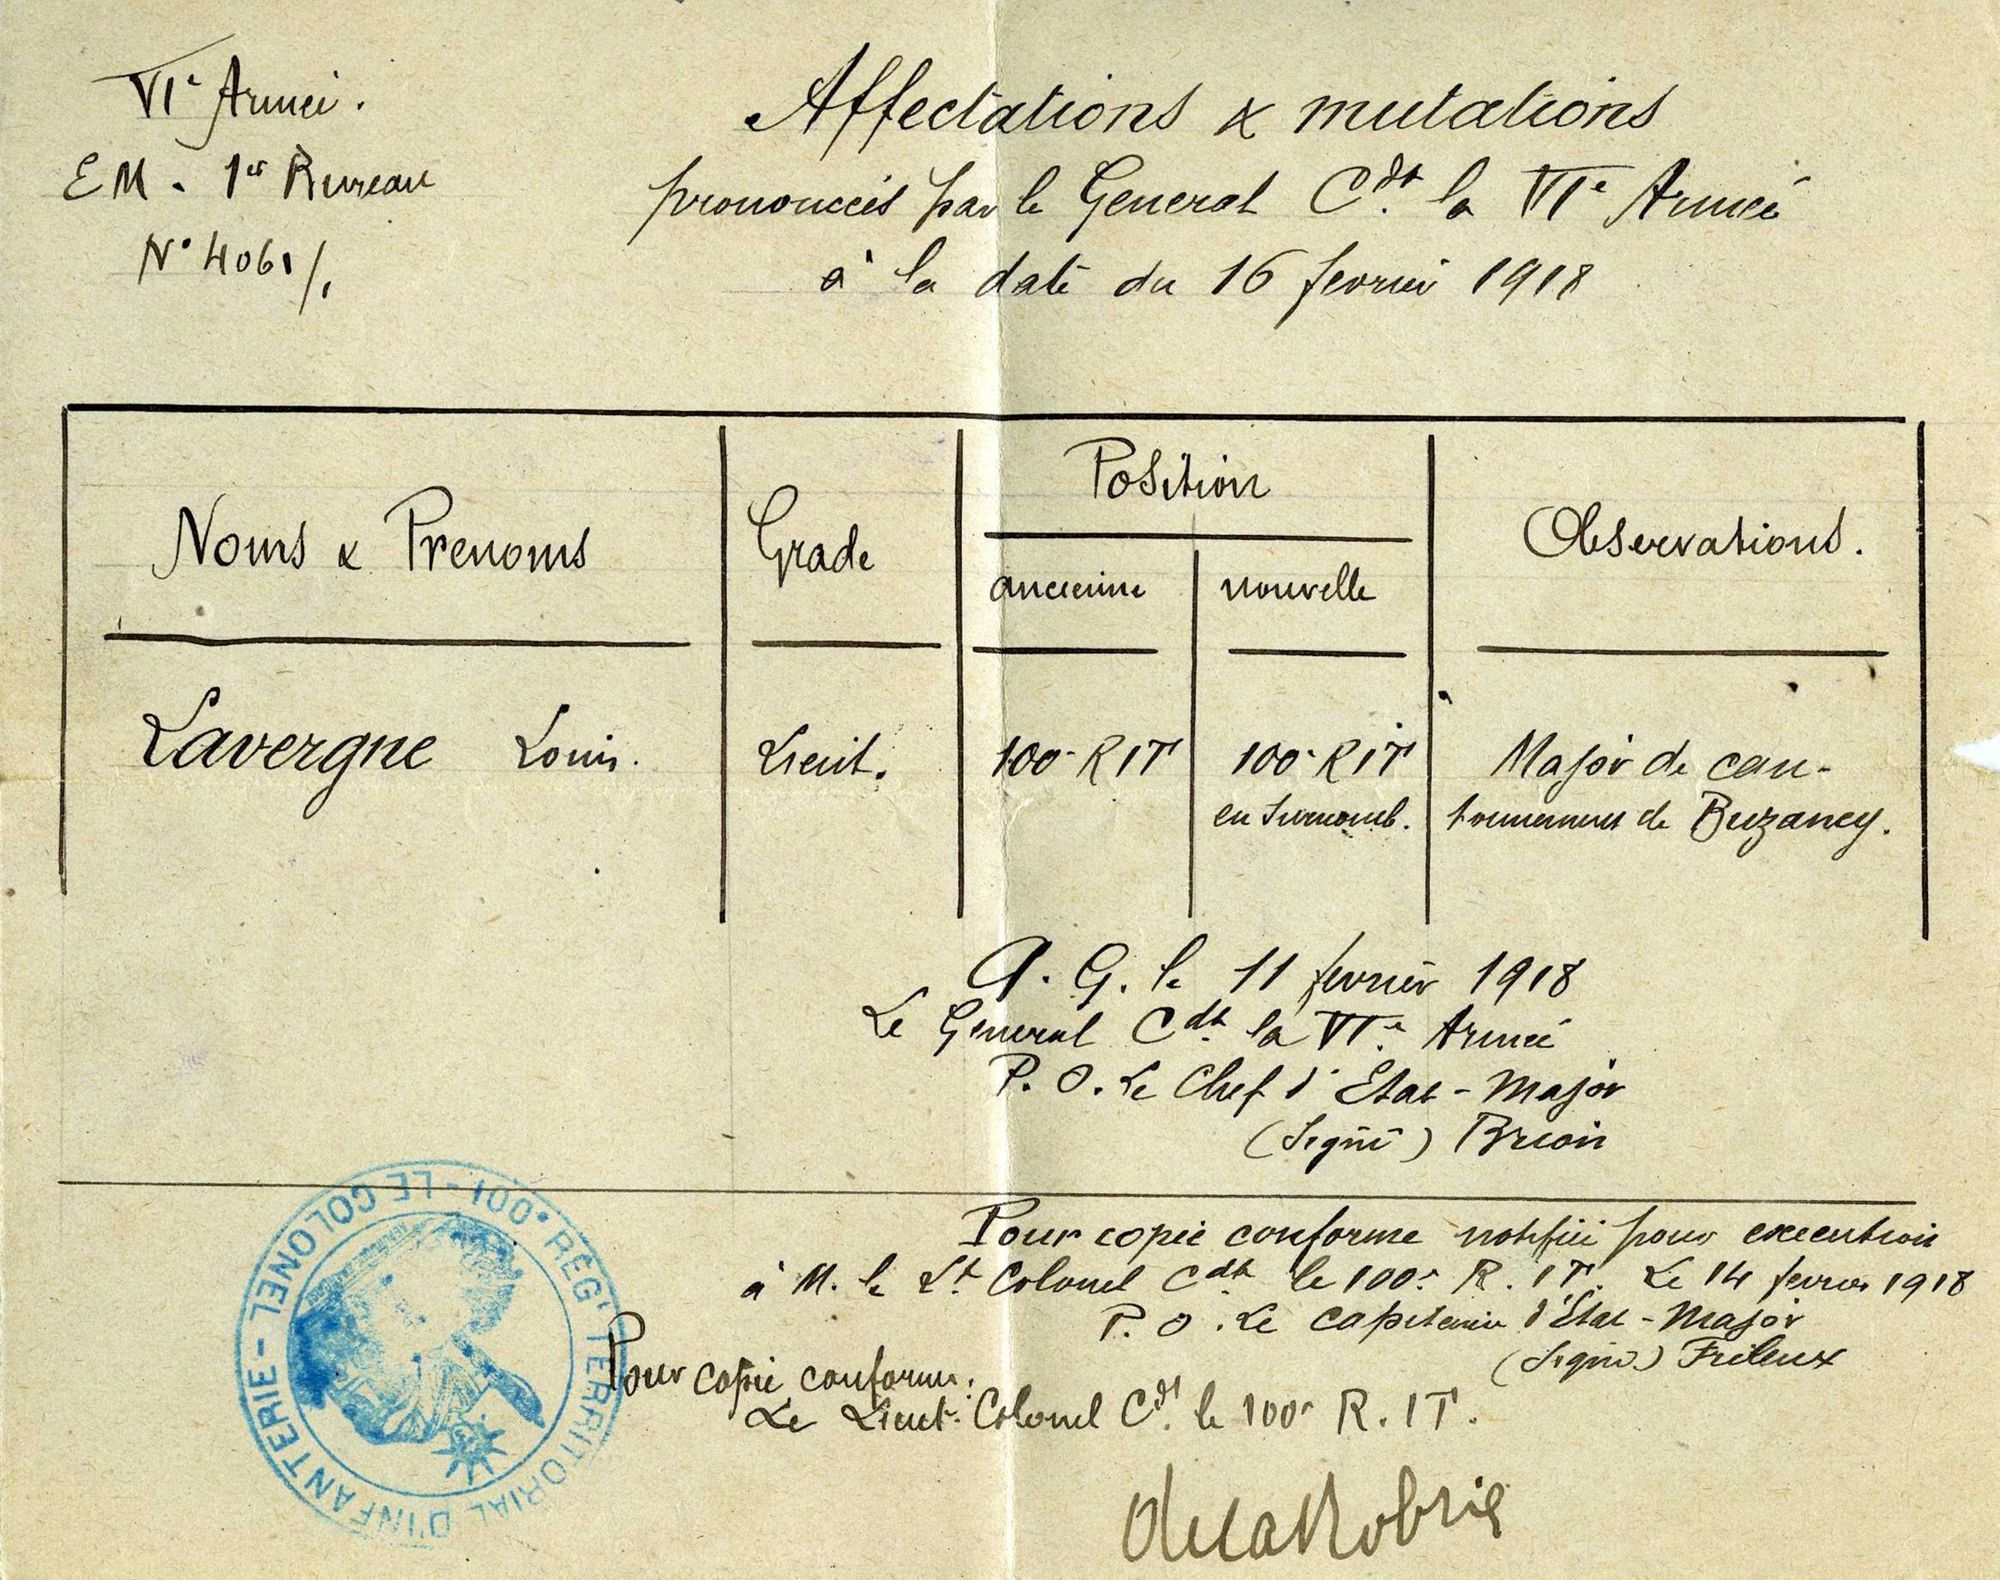 VIe Armée.
EM. 1er Bureau
N° 4061/1
Affectations & mutations
prononcées par le General Cdt la VIe Armée
à la date du 16 fevrier 1918
Noms & Prenoms
Grade
Position
ancienne
nouvelle
Observations.
Lavergne Louis.
Lieut.
100e RIT
100e RIT
en surnomb.
Major de can-
tonnement de Buzancy.
A. G. le 11 fevrier 1918
Le General Cdt la VIe Armée
P. O. Le Chef d'Etat-Major
(Signé)
Pour copie conforme notifiée pour execution
à M. le Lt Colonel Cdt le 100e R. IT. Le 14 fevrier 1918
P. O. Le Capitaine d'Etat-Major
(Signé)
Pour copie conforme:
Le Lieut. Colonel Cdt le 100e R. IT.
100e REGT TERRITORIAL D'INFANTERIE - LE COLONEL -